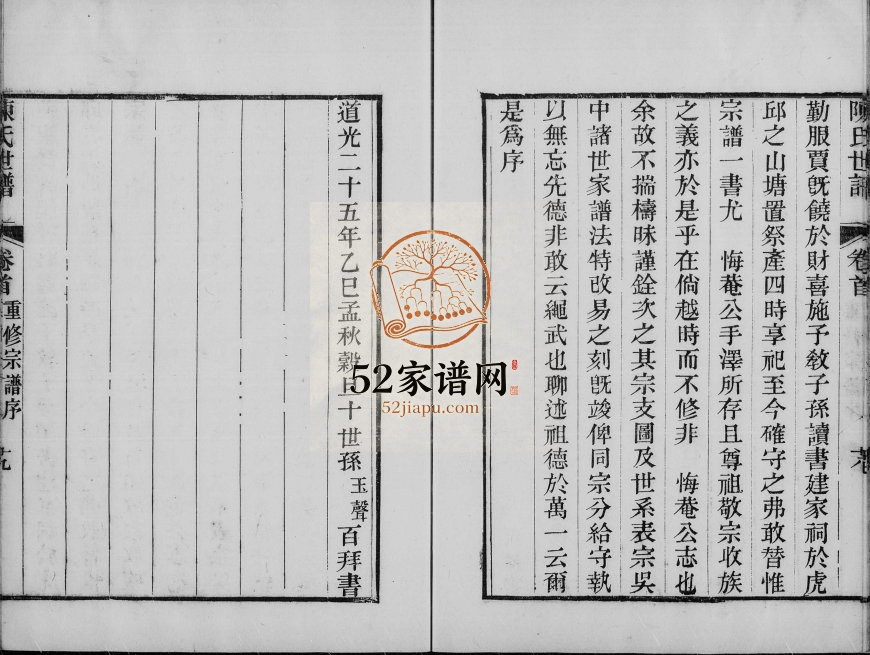 陳氏世譜 卷首
勤服賈旣饒於財喜施予敎子孫讀書建家祠於虎
邱之山塘置祭產四時享祀至今確守之弗敢替惟
宗譜一書尤 悔菴公手澤所存且尊祖敬宗收族
之義亦於是乎在倘越時而不修非 悔菴公志也
余故不揣檮昧謹銓次之其宗支圖及世系表宗吳
中諸世家譜法特改易之刻旣竣俾同宗分給守執
以無忘先德非敢云繩武也聊述祖德於萬一云爾
是爲序
道光二十五年乙巳孟秋穀旦十世孫玉聲百拜書
陳氏世譜 卷首 重修宗譜序
52家谱网
52jiapu.com